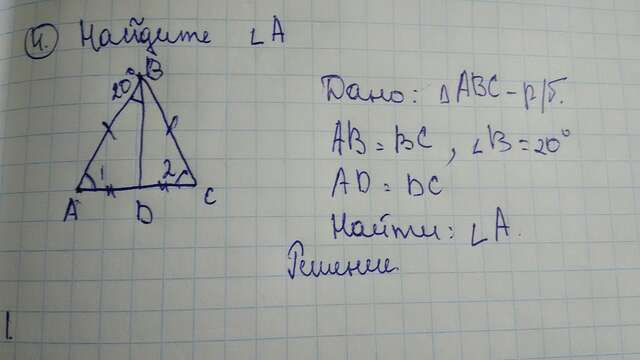 4. Найдите ∠A
20° B
1 2
A D C
Дано: △ABC – р/б.
AB = BC, ∠B = 20°
AD = DC
Найти: ∠A.
Решение